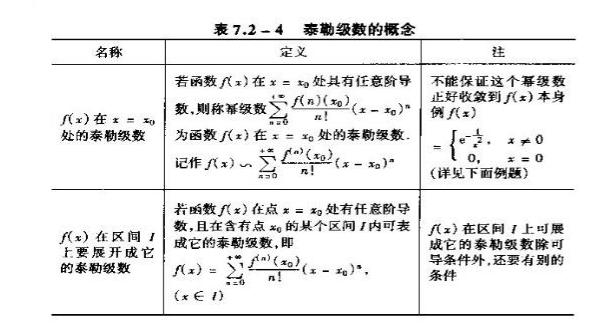 表 7.2-4 泰勒级数的概念
名称 定义 注
f(x) 在 x = x₀
处的泰勒级数
若函数 f(x) 在 x = x₀ 处具有任意阶导
数,则称幂级数 \sum_{n=0}^{+∞} \frac{f(n)(x₀)}{n!}(x - x₀)ⁿ
为函数 f(x) 在 x = x₀ 处的泰勒级数.
记作 f(x) ∽ \sum_{n=0}^{+∞} \frac{f^{(n)}(x₀)}{n!}(x - x₀)ⁿ
不能保证这个幂级数
正好收敛到 f(x) 本身
例 f(x)
= \begin{cases} e^{-\frac{1}{x^2}}, & x ≠ 0 \\ 0, & x = 0 \end{cases}
(详见下面例题)
f(x) 在区间 I
上要展开成它
的泰勒级数
若函数 f(x) 在点 x = x₀ 处有任意阶导
数,且在含有点 x₀ 的某个区间 I 内可表
成它的泰勒级数,即
f(x) = \sum_{n=0}^{+∞} \frac{f^{(n)}(x₀)}{n!}(x - x₀)ⁿ,
(x ∈ I)
f(x) 在区间 I 上可展
成它的泰勒级数除可
导条件外,还要有别的
条件